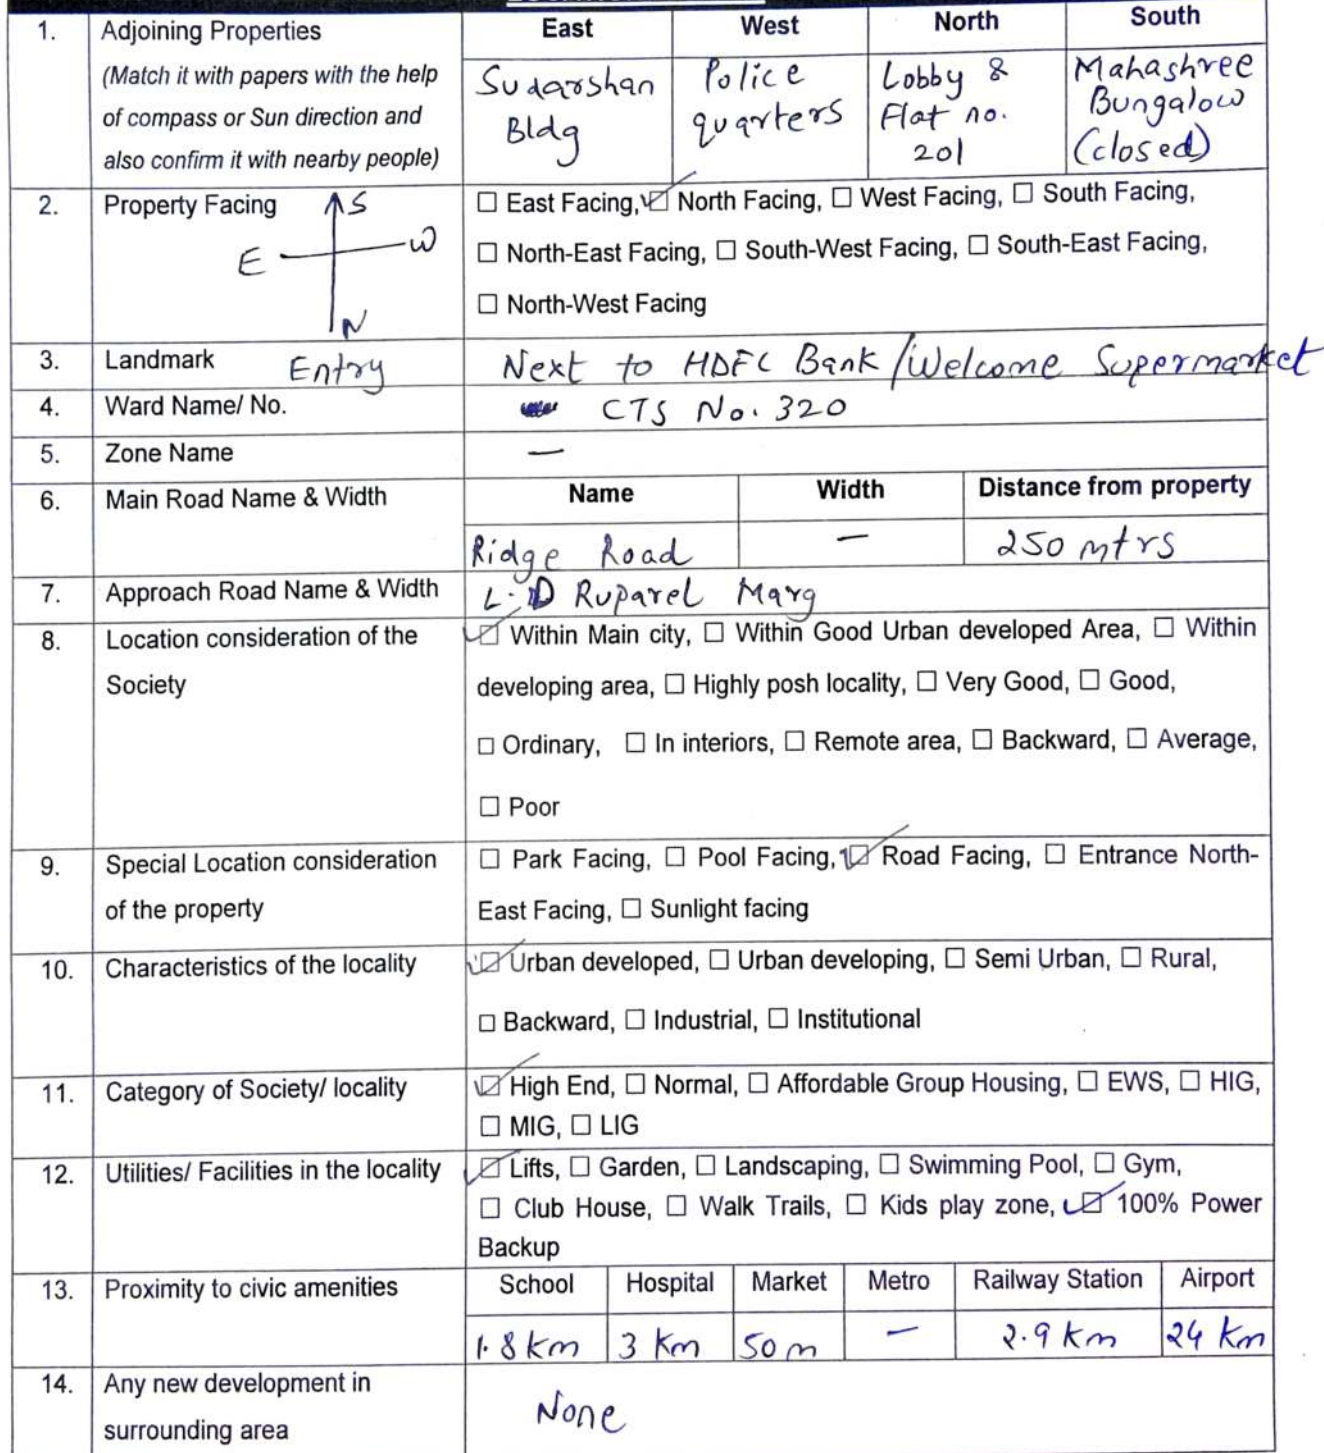 1. Adjoining Properties East West North South
(Match it with papers with the help
of compass or Sun direction and
also confirm it with nearby people)
Sudarshan
Bldg
Police
quarters
Lobby &
Flat no.
201
Mahashree
Bungalow
(closed)
2. Property Facing
S
E W
N
Entry
☐ East Facing, ☑ North Facing, ☐ West Facing, ☐ South Facing,
☐ North-East Facing, ☐ South-West Facing, ☐ South-East Facing,
☐ North-West Facing
3. Landmark Next to HDFC Bank/Welcome Supermarket
4. Ward Name/ No. CTS No. 320
5. Zone Name —
6. Main Road Name & Width Name Width Distance from property
Ridge Road — 250 mtrs
7. Approach Road Name & Width L.D Ruparel Marg
8. Location consideration of the
Society
☑ Within Main city, ☐ Within Good Urban developed Area, ☐ Within
developing area, ☐ Highly posh locality, ☐ Very Good, ☐ Good,
☐ Ordinary, ☐ In interiors, ☐ Remote area, ☐ Backward, ☐ Average,
☐ Poor
9. Special Location consideration
of the property
☐ Park Facing, ☐ Pool Facing, ☑ Road Facing, ☐ Entrance North-
East Facing, ☐ Sunlight facing
10. Characteristics of the locality
☑ Urban developed, ☐ Urban developing, ☐ Semi Urban, ☐ Rural,
☐ Backward, ☐ Industrial, ☐ Institutional
11. Category of Society/ locality
☑ High End, ☐ Normal, ☐ Affordable Group Housing, ☐ EWS, ☐ HIG,
☐ MIG, ☐ LIG
12. Utilities/ Facilities in the locality
☑ Lifts, ☐ Garden, ☐ Landscaping, ☐ Swimming Pool, ☐ Gym,
☐ Club House, ☐ Walk Trails, ☐ Kids play zone, ☑ 100% Power
Backup
13. Proximity to civic amenities School Hospital Market Metro Railway Station Airport
1.8 km 3 km 50 m — 2.9 km 24 km
14. Any new development in
surrounding area
None